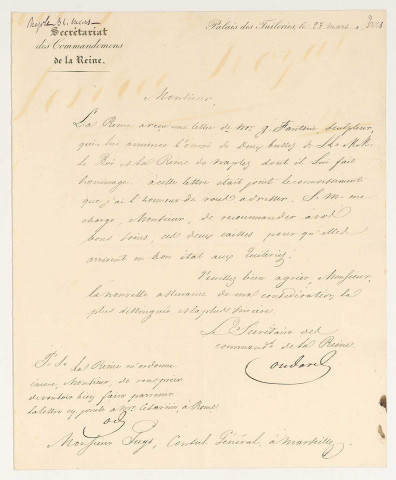 Reçu le 31 mars
Secrétariat
des Commandemens
de la Reine.
Palais des Tuileries, le 23 mars
Monsieur,
La Reine a reçu une lettre de Mr. J. Fantoni, Sculpteur,
qui lui annonce l'envoi de deux bustes de LL. MM.
le Roi et la Reine de Naples dont il lui fait
hommage. à cette lettre était joint le connaissement
que j'ai l'honneur de vous adresser. S. M. me
charge, Monsieur, de recommander à vos
bons soins, ces deux caisses, pour qu'elles
arrivent en bon état aux Tuileries.
Veuillez bien agréer, Monsieur,
la nouvelle assurance de ma considération la
plus distinguée et la plus sincère.
Le Secrétaire des
commandts. de la Reine
Oudard
P. S. La Reine m'ordonne
encore, Monsieur, de vous prier
de vouloir bien faire parvenir
la lettre ci-jointe à Mr. à Rome
Od
Monsieur Puys, Consul Général, à Marseille.